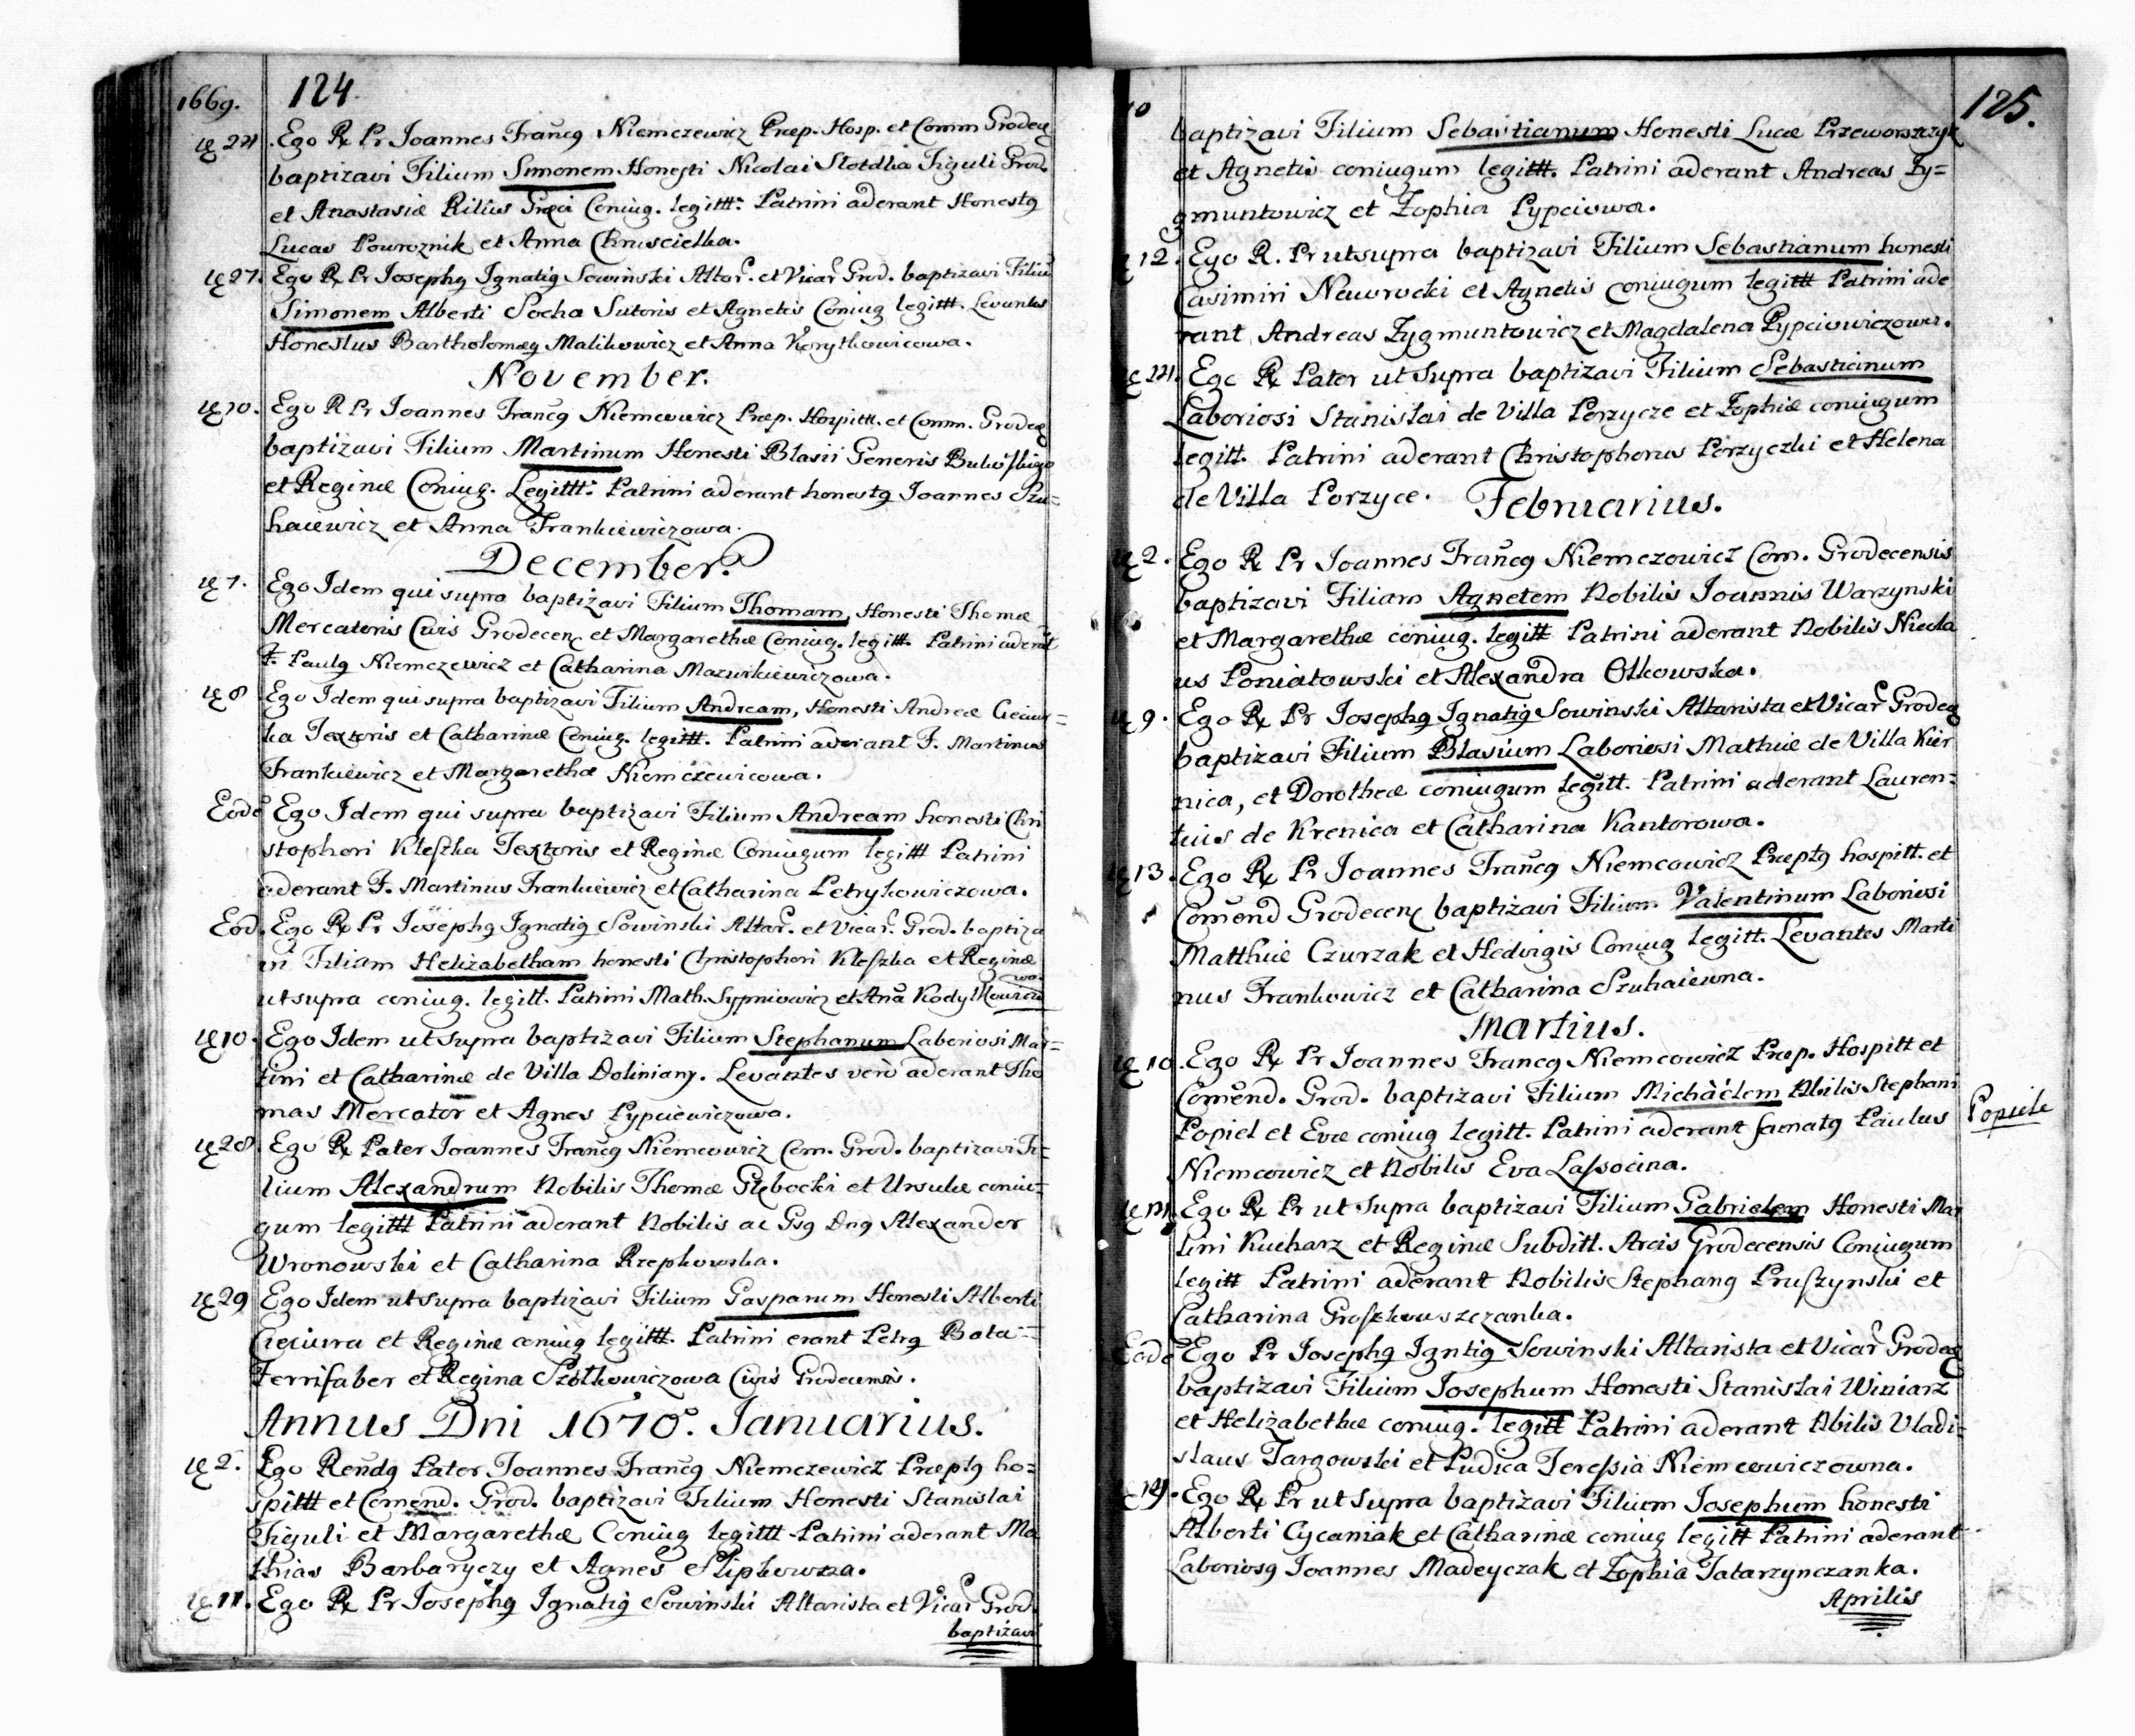 1669.
124
ię 24. Ego Rx Pr Joannes Francq Niemczewicz Præp. Hosp. et Comm Grodec
baptizavi Filium Simonem Honesti Nicolai Figuli Grod.
et Anastasiæ Ritus Græci Coniug. legittt: Patrini aderant Honestq
Lucas Powroznik et Anna Chruscielka.
ię 27. Ego Rx Pr Josephq Ignatiq Sowinski Altar. et Vicar Grod. baptizavi Filiu
Simonem Alberti Socha Sutoris et Agnetis Coniug legittt. Levantes
Honestus Bartholomæq Malikowicz et Anna Korytkowicowa.
November.
ię 10. Ego R Pr Joannes Francq Niemcowicz Præp. Hospittt. et Comm. Grodec
baptizavi Filium Martinum Honesti Blasii Generis
et Reginæ Coniug. Legittt: Patrini aderant honestq Joannes Szu-
haiewicz et Anna Frankiewiczowa.
December.
ię 7. Ego Idem qui supra baptizavi Filium Thomam, Honesti Thomæ
Mercatoris Civis Grodecen et Margarethæ Coniug. legittt. Patrini aderat
F. Paulq Niemczewicz et Catharina Mazurkiewiczowa.
ię 8. Ego Idem qui supra baptizavi Filium Andream, Honesti Andreæ
ka Textoris et Catharinæ Coniug. legittt. Patrini aderant F. Martinus
Frankiewicz et Margaretha Niemczewicowa.
Eode Ego Idem qui supra baptizavi Filium Andream honesti Chri
stophori Kleszka Textoris et Reginæ Coniugum legittt Patrini
aderant F. Martinus Frankiewicz et Catharina Petrykowiczowa.
Eod. Ego Rx Pr Josephq Ignatiq Sowinski Altar. et Vicar. Grod. baptiza
vi Filiam Helizabetham honesti Christophori Kleszka et Reginæ
ut supra coniug. legitt. Patrini Math. Sypniowicz et Ana
ię 10. Ego Idem ut supra baptizavi Filium Stephanum Laboriosi Mar-
tini et Catharinæ de Villa Doliniany. Levantes vero aderant Tho
mas Mercator et Agnes Pypciewiczowa.
ię 28. Ego Rx Pater Joannes Francq Niemcowicz Com. Grod. baptizavi Fi-
lium Alexandrum Nobilis Thomæ Głębocki et Ursulæ coniu-
gum legittt Patrini aderant Nobilis ac Gsq Dnq Alexander
Wronowski et Catharina Rzepkowska.
ię 29 Ego Idem ut supra baptizavi Filium Gasparum Honesti Alberti
Cieciura et Reginæ coniug legittt. Patrini erant Petrq Bata
Ferrifaber et Regina Szotkowiczowa Civis Grodecensis.
Annus Dni 1670. Januarius.
ię 2. Ego Rendq Pater Joannes Francq Niemczewicz Præptq ho-
spittt et Comend. Grod. baptizavi Filium Honesti Stanislai
Figuli et Margarethæ Coniug legittt Patrini aderant Ma
thias Barbaryczy et Agnes
ię 11. Ego Rx Pr Josephq Ignatiq Sowinski Altarista et Vicar Grod.
baptizavi
125.
baptizavi Filium Sebastianum Honesti Lucæ Przeworszczyk
et Agnetis coniugum legittt. Patrini aderant Andreas Zy-
gmuntowicz et Zophia Pypciowa.
12. Ego R. Pr ut supra baptizavi Filium Sebastianum honesti
Casimiri Nawrocki et Agnetis coniugum legittt Patrini ade
rant Andreas Zygmuntowicz et Magdalena Pypciowiczowa.
21. Ego Rx Pater ut supra baptizavi Filium Sebastianum
Laboriosi Stanislai de Villa Porzycze et Zophiæ coniugum
legitt. Patrini aderant Christophorus Porzyczki et Helena
de Villa Porzyce.
Februarius.
ię 2. Ego Rx Pr Joannes Francq Niemczowicz Com. Grodecensis
baptizavi Filiam Agnetem Nobilis Joannis Warzynski
et Margarethæ coniug. legitt Patrini aderant Nobilis Nicola
us Poniatowski et Alexandra Olkowska.
ię 9. Ego Rx Pr Josephq Ignatiq Sowinski Altarista et Vicar Grodec
baptizavi Filium Blasium Laboriosi Mathiæ de Villa Kier
nica, et Dorotheæ coniugum legitt. Patrini aderant Lauren-
tius de Krenica et Catharina Kantorowa.
ię 13. Ego Rx Pr Joannes Francq Niemcowicz Præptq hospitt. et
Comend Grodecen baptizavi Filium Valentinum Laboriosi
Matthiæ Czurzak et Hedvigis Coniug legitt. Levantes Marti
nus Frankowicz et Catharina Szuhaiewna.
Martius.
ię 10. Ego Rx Pr Joannes Francq Niemcowicz Præp. Hospitt et
Comend. Grod. baptizavi Filium Michaelem Nbilis Stephani
Popiel et Evæ coniug legitt. Patrini aderant famatq Paulus
Niemcowicz et Nobilis Eva Lassocina.
Popiele
Ego Rx Pr ut supra baptizavi Filium Gabrielem Honesti Mar
tini Kucharz et Reginæ Subditt. Arcis Grodecensis Coniugum
legitt Patrini aderant Nobilis Stephanq Pruszynski et
Catharina
Eode Ego Pr Josephq Igntiq Sowinski Altarista et Vicar Grodec
baptizavi Filium Josephum Honesti Stanislai Winiarz
et Helizabethæ coniug. legitt Patrini aderant Nbilis Vladi-
slaus Targowski et Pudica Teressia Niemcewiczowna.
19. Ego Rx Pr ut supra baptizavi Filium Josephum honesti
Alberti Cycaniak et Catharinæ coniug legitt Patrini aderant
Laboriosq Joannes Madeyczak et Zophia Tatarzynczanka.
Aprilis